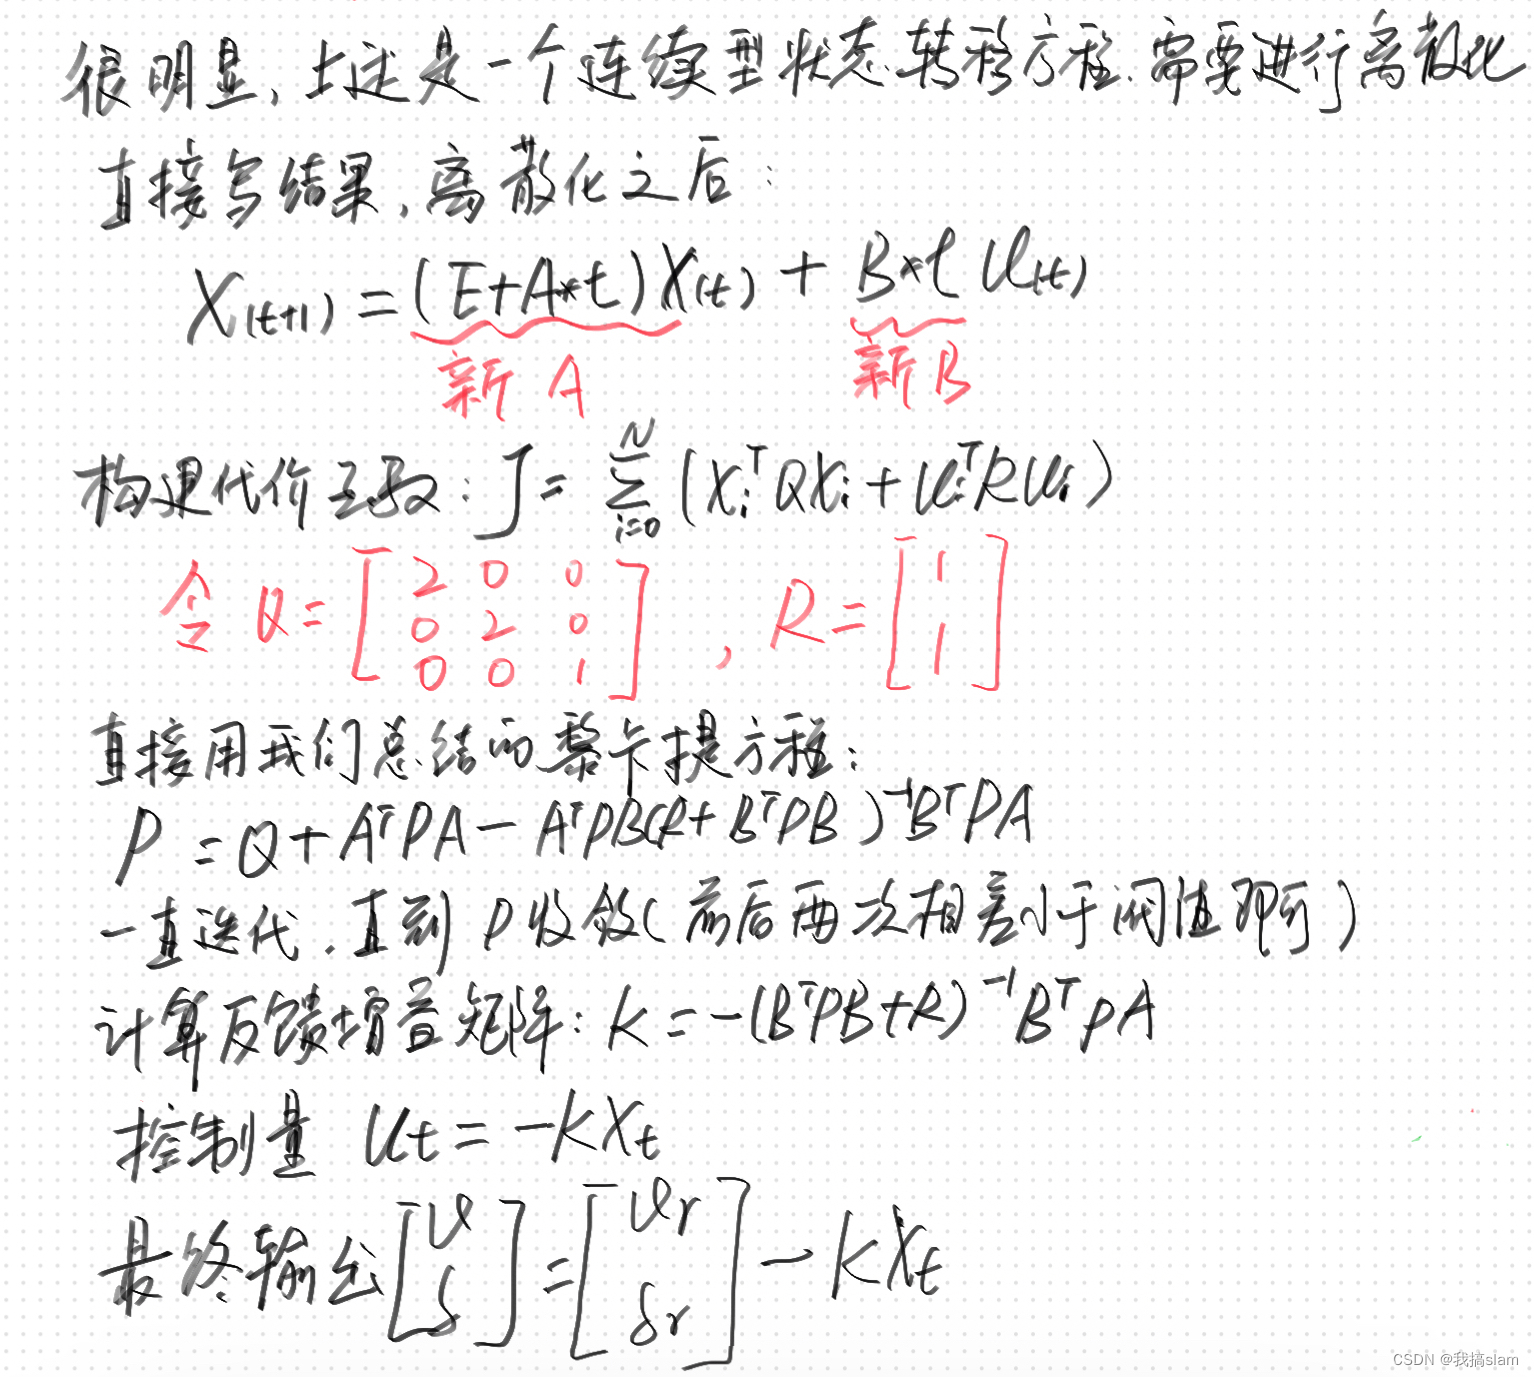 很明显，上述是一个连续型状态转移方程.需要进行离散化
直接写结果，离散化之后：
X(t+1) = (E+A*t)X(t) + B*t U(t)
新A 新B
构建代价函数：J = \sum_{i=0}^{N} (X_i^T Q X_i + U_i^T R U_i)
令 Q = [2 0 0; 0 2 0; 0 0 1] , R = [1; 1]
直接用我们总结的黎卡提方程：
P = Q + A^T P A - A^T P B (R + B^T P B)^{-1} B^T P A
一直迭代，直到 P 收敛（前后两次相差小于阈值即可）
计算反馈增益矩阵：K = -(B^T P B + R)^{-1} B^T P A
控制量 U_t = -K X_t
最终输出 [v; δ] = [v_r; δ_r] - K X_t
CSDN @我搞slam